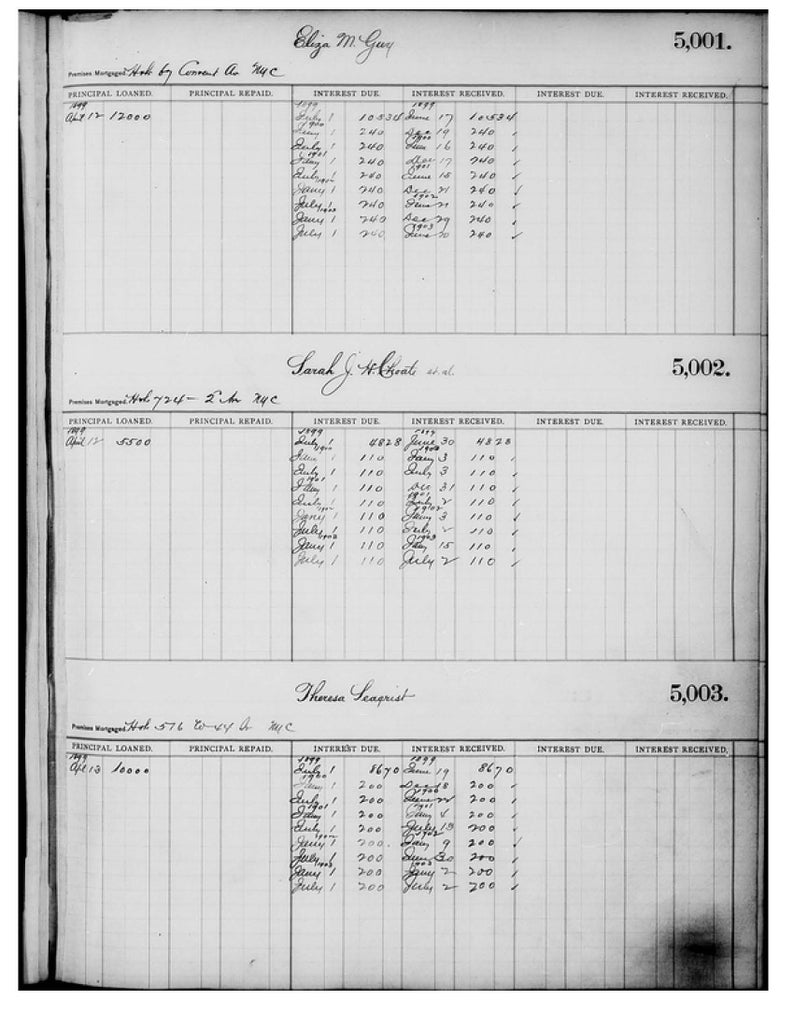 Eliza M. Guy 5,001.
Premises Mortgaged. Ho & by Convent Av NYC
PRINCIPAL LOANED. PRINCIPAL REPAID. INTEREST DUE. INTEREST RECEIVED. INTEREST DUE. INTEREST RECEIVED.
1899 1899 1899
April 12 12000 July 1 10534 June 17 10534
1900
Jany 1 240 Dec 19 240 ✓
1900
July 1 240 June 16 240 ✓
1901
Jany 1 240 Dec 17 240 ✓
1901
July 1 240 June 15 240 ✓
1902
Jany 1 240 Dec 21 240 ✓
1902
July 1 240 June 21 240 ✓
1903
Jany 1 240 Dec 29 240 ✓
1903
July 1 240 June 20 240 ✓
Sarah J. H. Choate et al. 5,002.
Premises Mortgaged. 724 - 2 Av NYC
PRINCIPAL LOANED. PRINCIPAL REPAID. INTEREST DUE. INTEREST RECEIVED. INTEREST DUE. INTEREST RECEIVED.
1899 1899 1899
April 12 5500 July 1 4828 June 30 4828
1900 1900
Jany 1 110 Jany 3 110 ✓
July 1 110 July 3 110 ✓
1901
Jany 1 110 Dec 31 110 ✓
1901
July 1 110 July 2 110 ✓
1902 1902
Jany 1 110 Jany 3 110 ✓
July 1 110 July 2 110 ✓
1903 1903
Jany 1 110 Jany 15 110 ✓
July 1 110 July 2 110 ✓
Theresa Seagrist 5,003.
Premises Mortgaged. 516 W 44 NYC
PRINCIPAL LOANED. PRINCIPAL REPAID. INTEREST DUE. INTEREST RECEIVED. INTEREST DUE. INTEREST RECEIVED.
1899 1899 1899
Apl 13 10000 July 1 8670 June 19 8670
1900
Jany 1 200 Dec 18 200 ✓
1900
July 1 200 June 22 200 ✓
1901 1901
Jany 1 200 Jany 4 200 ✓
July 1 200 July 13 200 ✓
1902 1902
Jany 1 200 Jany 9 200 ✓
July 1 200 June 30 200 ✓
1903 1903
Jany 1 200 Jany 2 200 ✓
July 1 200 July 2 200 ✓